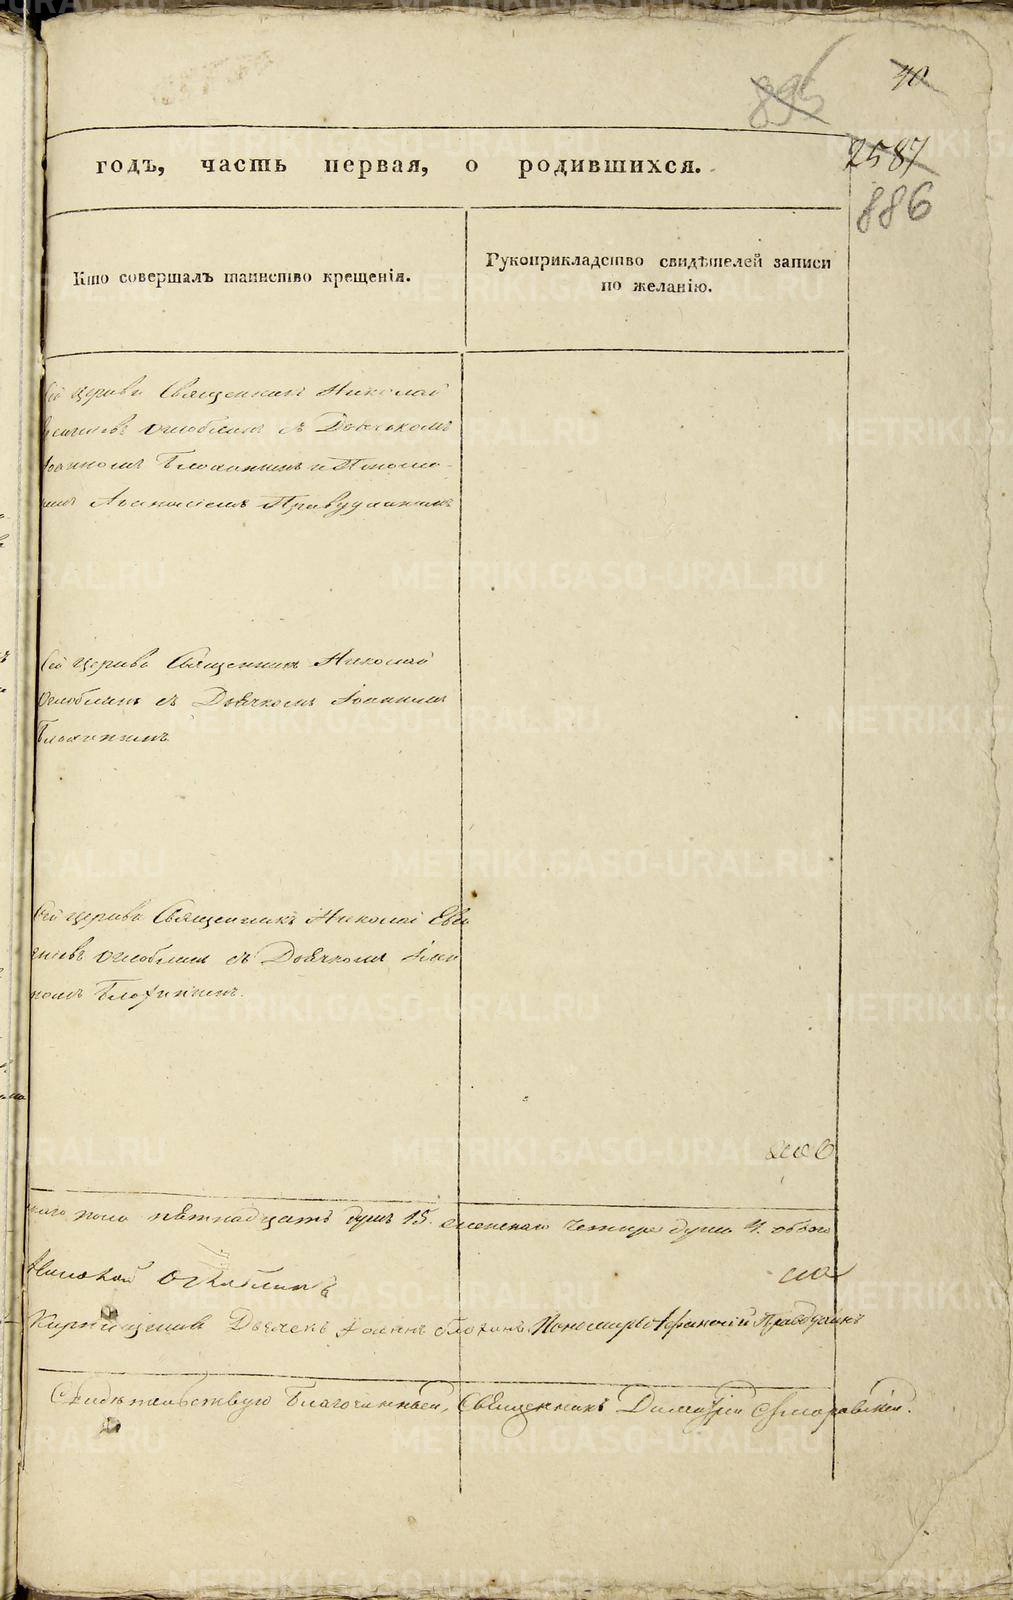 895
40
2587
886
годъ, часть первая, о родившихся.
Кто совершалъ таинство крещенія.
Рукоприкладство свидѣтелей записи
по желанію.
Сей церкви Священникъ Николай
Оглоблинъ съ Дьячкомъ
Іоанномъ Блохинымъ и Поном
Афанасіемъ Правдухинымъ
Сей церкви Священникъ Николай
Оглоблинъ съ Дьячкомъ Іоанномъ
Блохинымъ
Сей церкви Священникъ Николай Евг
Оглоблинъ съ Дьячкомъ Іоан
номъ Блохинымъ.
пола пятнадцать душъ 15. женскаго четыре души 4. обоего
Николай Оглоблинъ
Дьячекъ Іоаннъ Блохинъ. Пономарь Афанасій Правдухинъ
Свидѣтельствую Благочинный, Священникъ Димитрій
METRIKI.GASO-URAL.RU